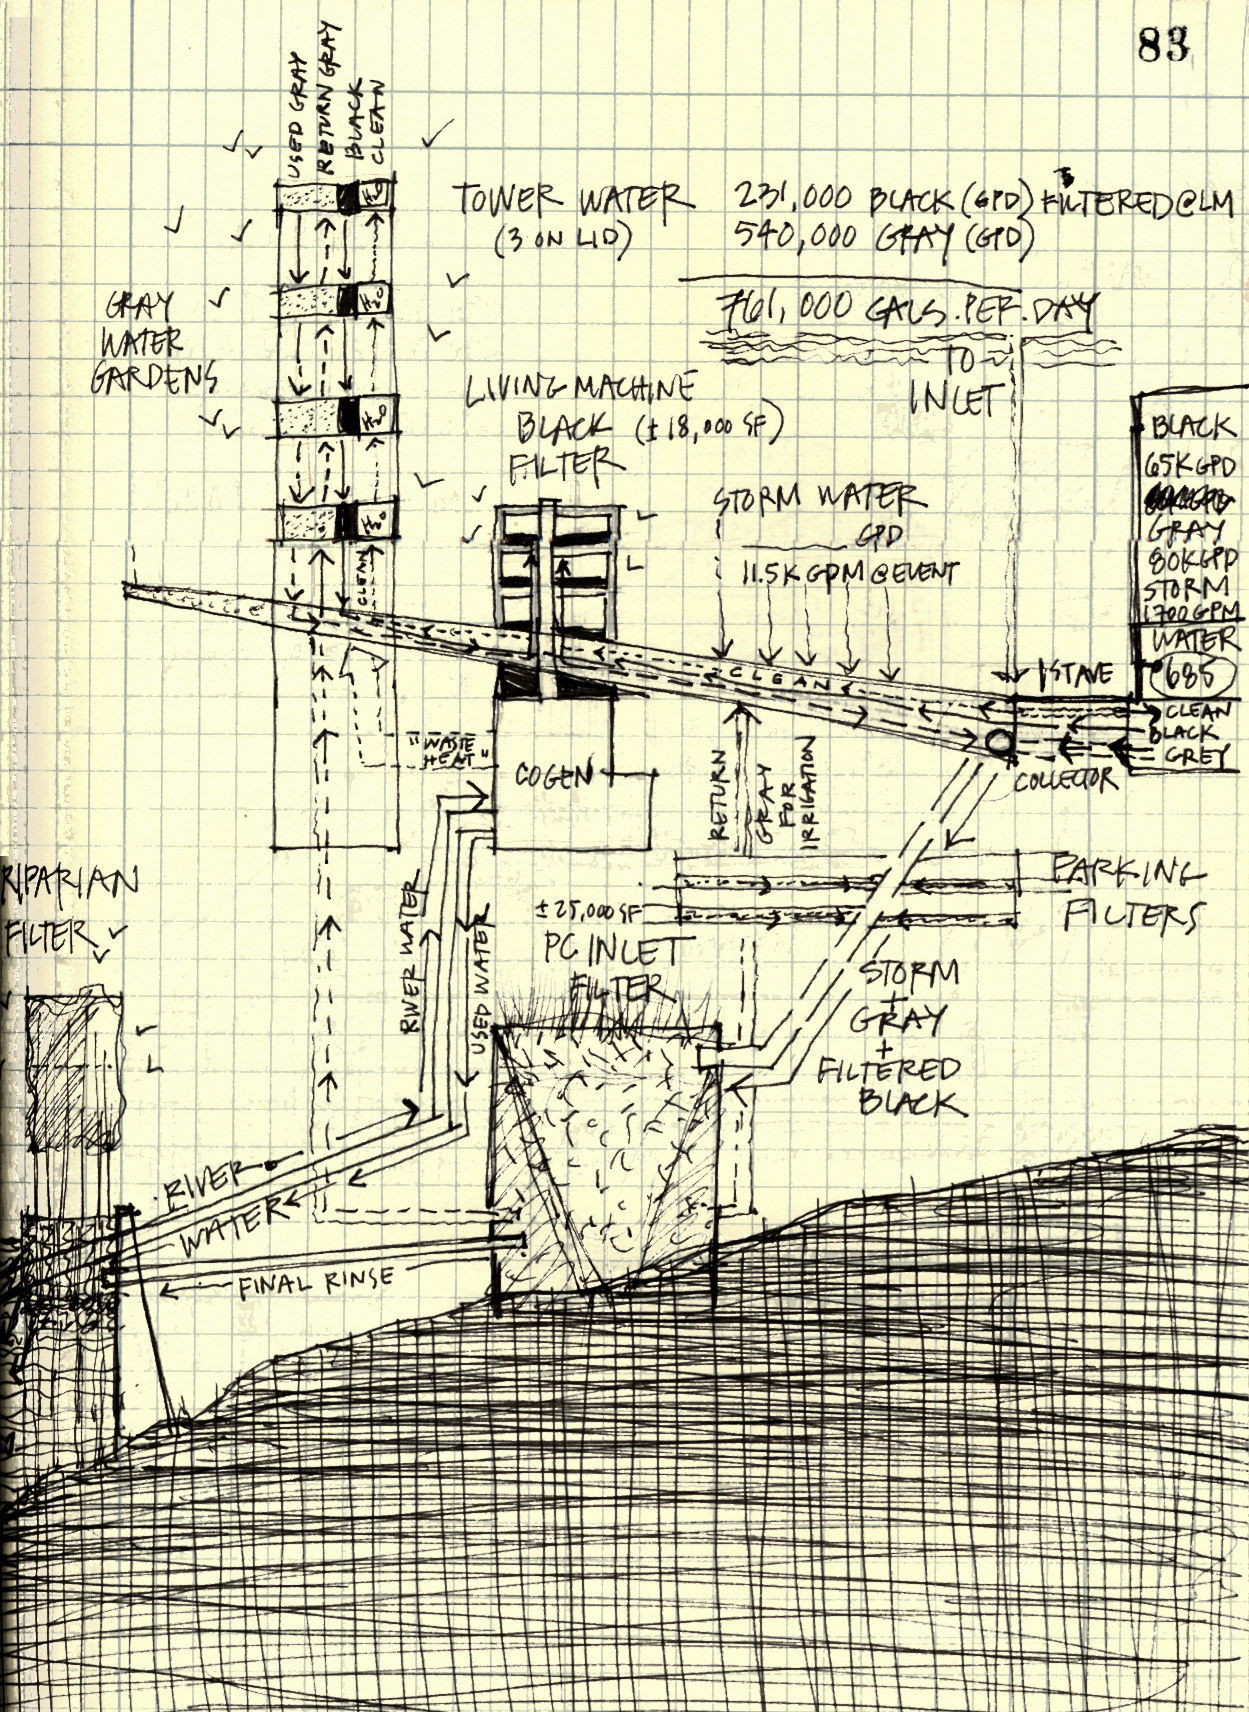 83
USED GRAY
RETURN GRAY
BLACK
CLEAN
H2O
TOWER WATER
(3 ON LID)
231,000 BLACK (GPD) FILTERED @ LM
540,000 GRAY (GPD)
761,000 GALS. PER. DAY
TO
INLET
H2O
GRAY
WATER
GARDENS
LIVING MACHINE
BLACK (±18,000 SF)
FILTER
H2O
H2O
STORM WATER
GPD
11.5K GPM @ EVENT
BLACK
65K GPD
GRAY
80K GPD
STORM
1700 GPM
WATER
@ 685
CLEAN
CLEAN
1 STAVE
CLEAN
BLACK
GREY
COLLECTOR
"WASTE
HEAT"
COGEN
RETURN
GRAY
FOR
IRRIGATION
PARKING
FILTERS
RIPARIAN
FILTER
RIVER WATER
USED WATER
±25,000 SF
PC INLET
FILTER
STORM
+
GRAY
+
FILTERED
BLACK
RIVER
WATER
FINAL RINSE